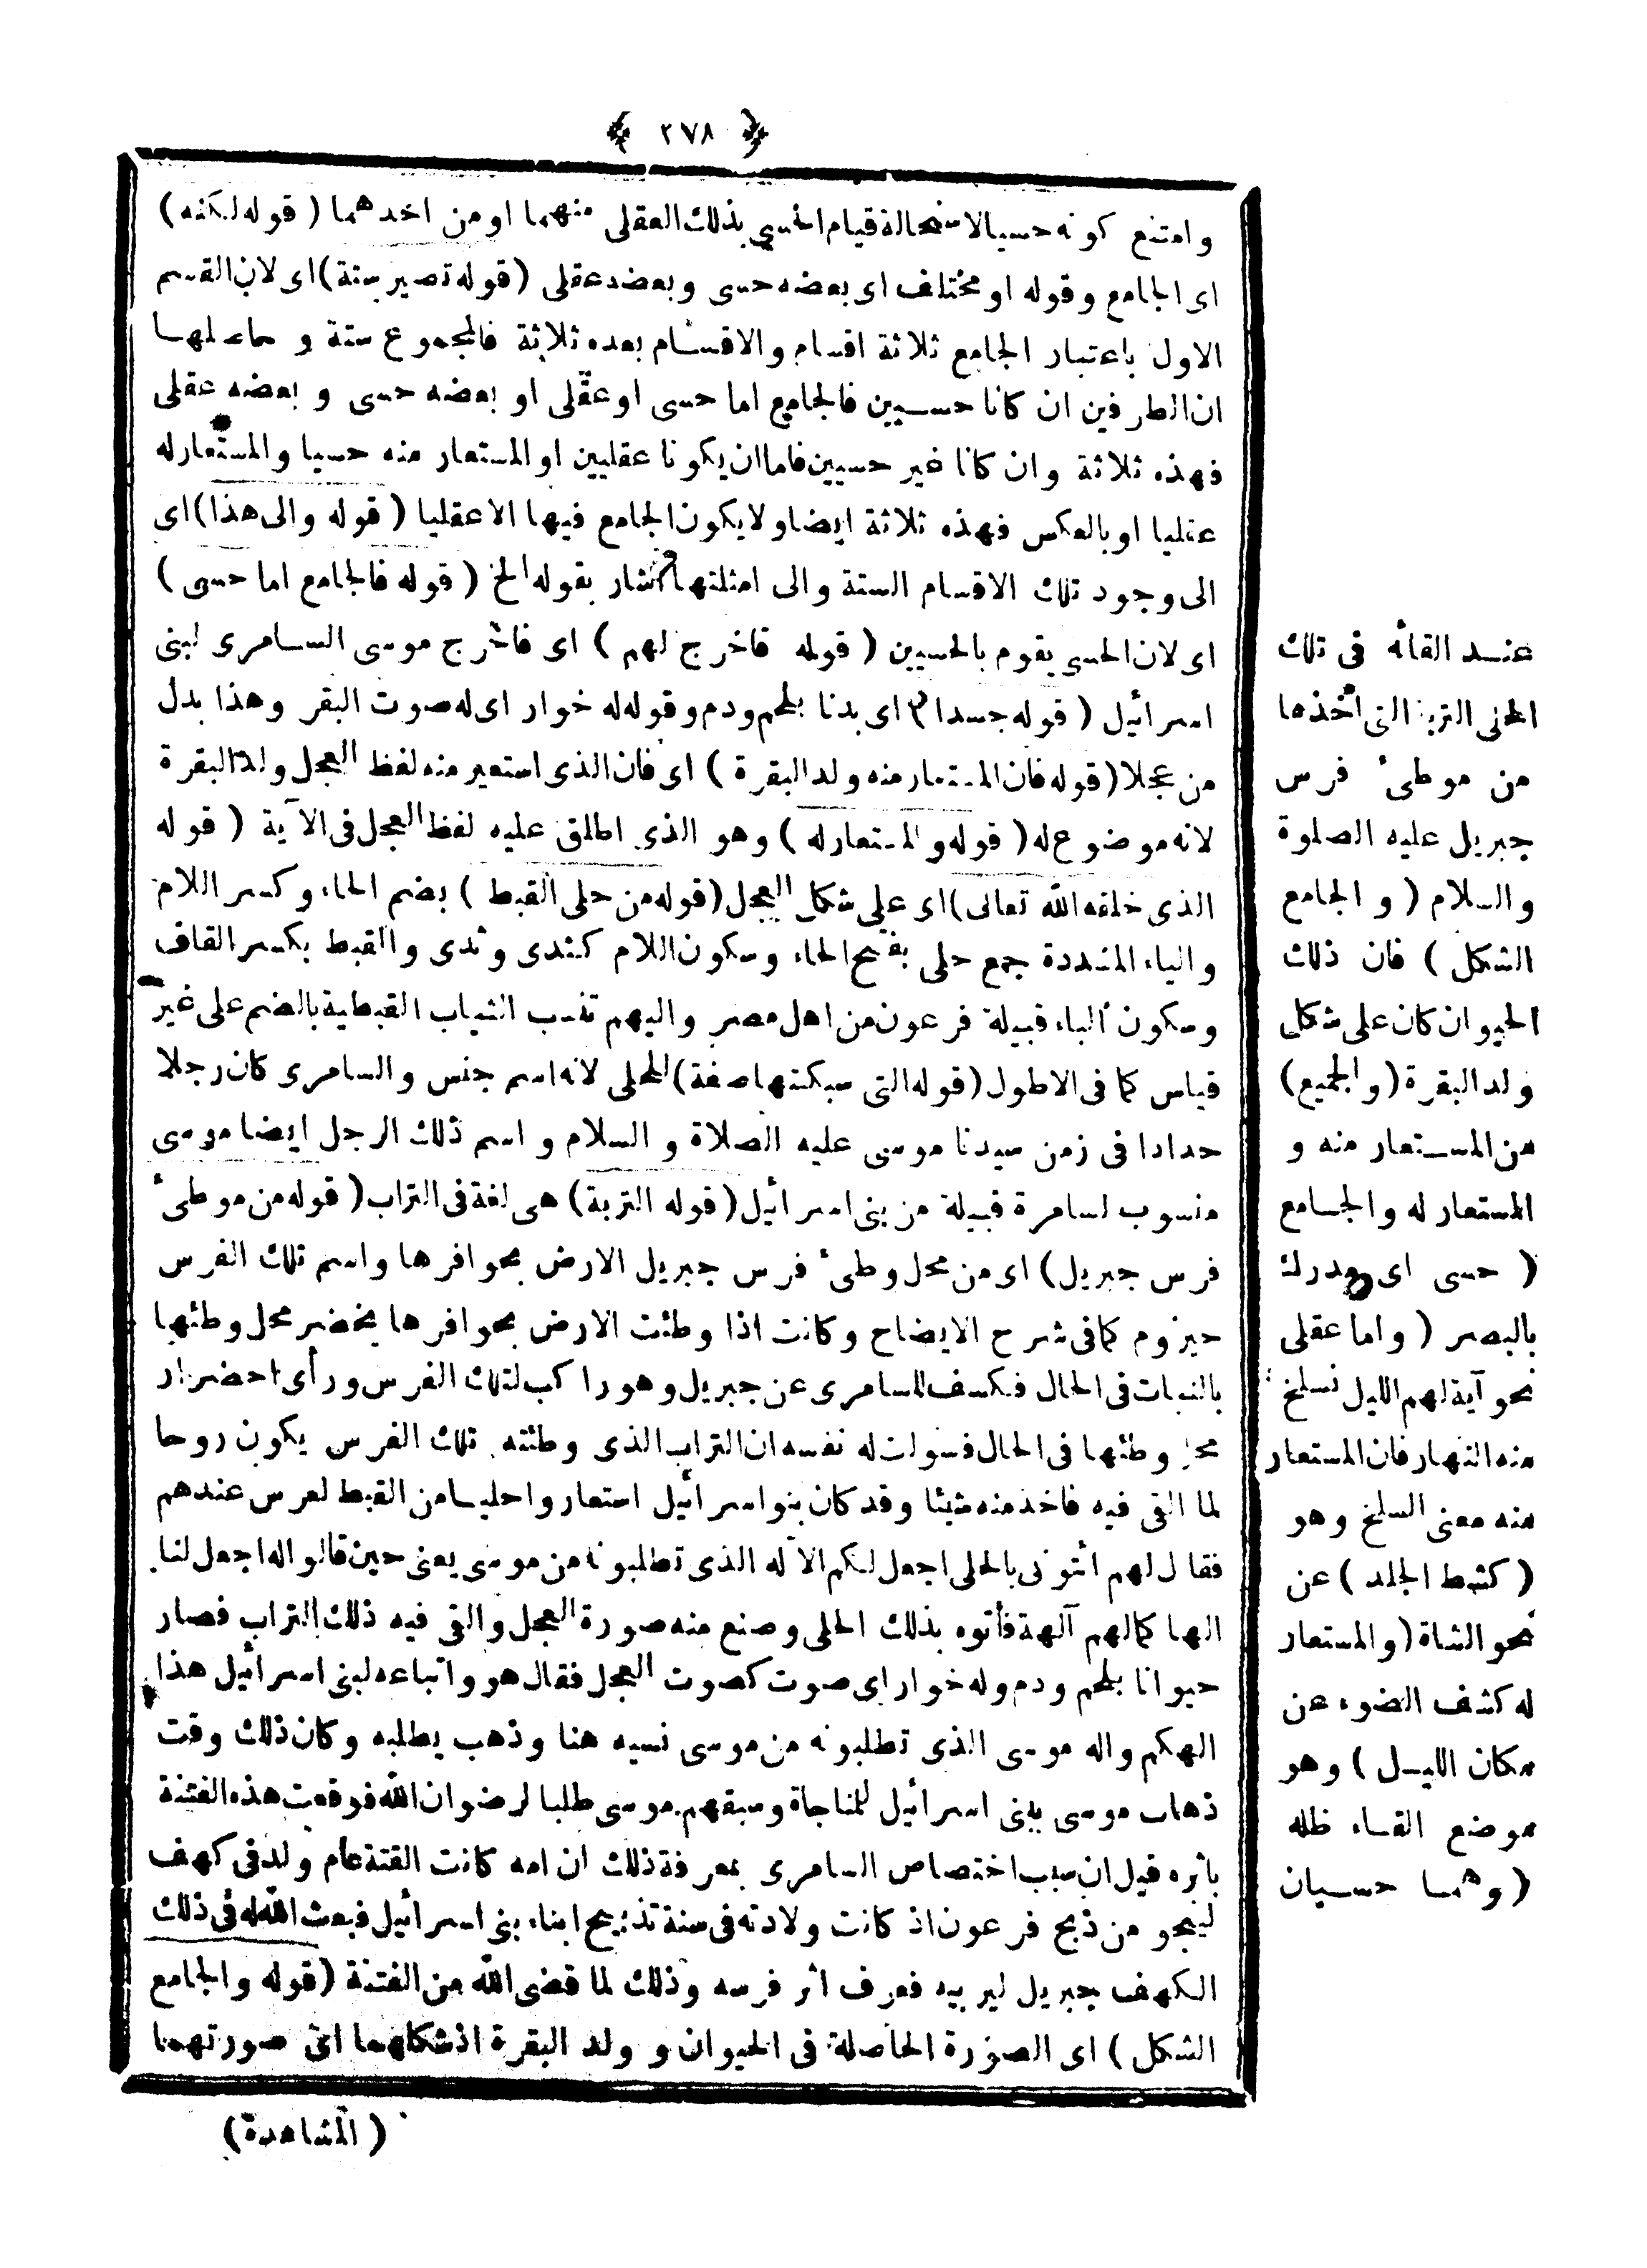 ﴿ ٢٧٨ ﴾
وامتنع كونه حسيا لاستحالة قيام الحسى بذلك العقلى منهما او من احدهما ( قوله لكنه )
اى الجامع وقوله او مختلف اى بعضه حسى وبعضه عقلى ( قوله تصير ستة ) اى لان القسم
الاول باعتبار الجامع ثلاثة اقسام والاقسام بعده ثلاثة فالمجموع ستة و حاصلها
ان الطرفين ان كانا حسيين فالجامع اما حسى او عقلى او بعضه حسى و بعضه عقلى
فهذه ثلاثة وان كانا غير حسيين فاما ان يكونا عقليين او المستعار منه حسيا والمستعار له
عقليا او بالعكس فهذه ثلاثة ايضا ولا يكون الجامع فيها الا عقليا ( قوله والى هذا ) اى
الى وجود تلك الاقسام الستة والى امثلتها اشار بقوله الخ ( قوله فالجامع اما حسى )
اى لان الحسى يقوم بالحسيين ( قوله فاخرج لهم ) اى فاخرج موسى السامرى لبنى
اسرائيل ( قوله جسدا ) اى بدنا بلحم ودم وقوله له خوار اى له صوت البقر وهذا بدل
من عجلا ( قوله فان المستعار منه ولد البقرة ) اى فان الذى استعير منه لفظ العجل ولد البقرة
لانه موضوع له ( قوله والمستعار له ) وهو الذى اطلق عليه لفظ العجل فى الآية ( قوله
الذى خلقه الله تعالى ) اى على شكل العجل ( قوله من حلى القبط ) بضم الحاء وكسر اللام
والياء المشددة جمع حلى بفتح الحاء وسكون اللام كثدى وثدى والقبط بكسر القاف
وسكون الباء قبيلة فرعون من اهل مصر واليهم تنسب الثياب القبطية بالضم على غير
قياس كما فى الاطول ( قوله التى سبكتها صفة ) للحلى لانه اسم جنس والسامرى كان رجلا
حدادا فى زمن سيدنا موسى عليه الصلاة و السلام و اسم ذلك الرجل ايضا موسى
منسوب لسامرة قبيلة من بنى اسرائيل ( قوله التربة ) هى لغة فى التراب ( قوله من موطئ
فرس جبريل ) اى من محل وطئ فرس جبريل الارض بحوافرها واسم تلك الفرس
حيزوم كما فى شرح الايضاح وكانت اذا وطئت الارض بحوافرها يخضر محل وطئها
بالنبات فى الحال فكشف للسامرى عن جبريل وهو راكب لتلك الفرس ورأى اخضرار
محل وطئها فى الحال فسولت له نفسه ان التراب الذى وطئته تلك الفرس يكون روحا
لما القى فيه فاخذ منه شيئا وقد كان بنو اسرائيل استعاروا حليا من القبط لعرس عندهم
فقال لهم ائتونى بالحلى اجعل لكم الاله الذى تطلبونه من موسى يعنى حين قالوا له اجعل لنا
الها كما لهم آلهة فأتوه بذلك الحلى وصنع منه صورة العجل والقى فيه ذلك التراب فصار
حيوانا بلحم ودم وله خوار اى صوت كصوت العجل فقال هو واتباعه لبنى اسرائيل هذا
الهكم واله موسى الذى تطلبونه من موسى نسيه هنا وذهب يطلبه وكان ذلك وقت
ذهاب موسى ببنى اسرائيل للمناجاة وسبقهم موسى طلبا لرضوان الله فوقعت هذه الفتنة
باثره قيل ان سبب اختصاص السامرى بمعرفة ذلك ان امه كانت القته عام ولد فى كهف
لينجو من ذبح فرعون اذ كانت ولادته فى سنة تذبيح ابناء بنى اسرائيل فبعث الله له فى ذلك
الكهف جبريل ليربيه فعرف اثر فرسه وذلك لما قضى الله من الفتنة ( قوله والجامع
الشكل ) اى الصورة الحاصلة فى الحيوان و ولد البقرة اذ شكلهما اى صورتهما
( المشاهدة )
عند القائه فى تلك
الحلى التربة التى أخذها
من موطئ فرس
جبريل عليه الصلوة
والسلام ( و الجامع
الشكل ) فان ذلك
الحيوان كان على شكل
ولد البقرة ( والجميع )
من المستعار منه و
المستعار له والجامع
( حسى اى مدرك
بالبصر ( واما عقلى
نحو آية لهم الليل نسلخ
منه النهار فان المستعار
منه معنى السلخ وهو
( كشط الجلد ) عن
نحو الشاة ( والمستعار
له كشف الضوء عن
مكان الليل ) وهو
موضع القاء ظله
( وهما حسيان